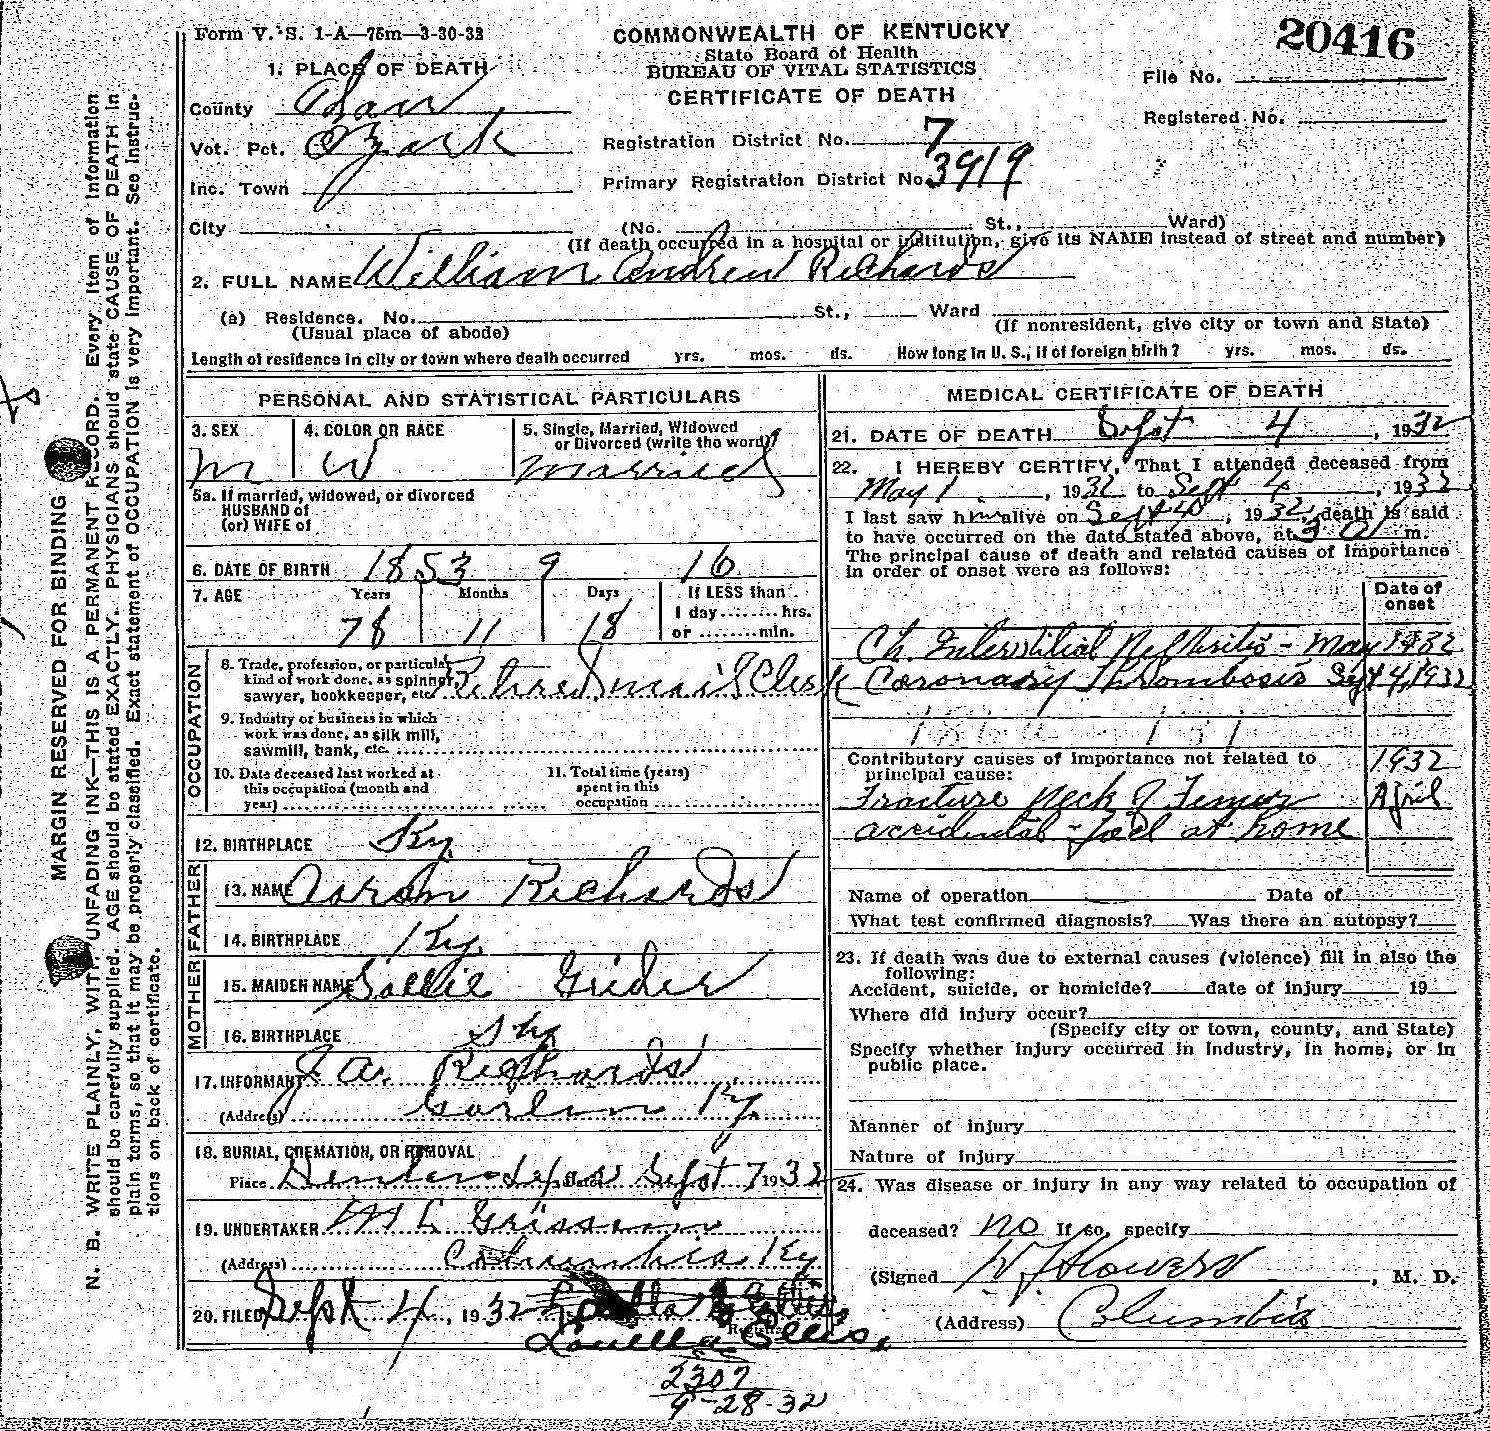 Form V. S. 1-A—75m—3-30-32
COMMONWEALTH OF KENTUCKY
State Board of Health
BUREAU OF VITAL STATISTICS
CERTIFICATE OF DEATH
20416
File No.
Registered No.
1. PLACE OF DEATH
County
Vot. Pct. Ozark
Inc. Town
City
Registration District No. 7
Primary Registration District No. 3919
(No. St., Ward)
(If death occurred in a hospital or institution, give its NAME instead of street and number)
2. FULL NAME William Andrew Richards
(a) Residence. No. St., Ward
(Usual place of abode) (If nonresident, give city or town and State)
Length of residence in city or town where death occurred yrs. mos. ds. How long in U. S., if of foreign birth? yrs. mos. ds.
PERSONAL AND STATISTICAL PARTICULARS
3. SEX 4. COLOR OR RACE 5. Single, Married, Widowed
or Divorced (write the word)
M W Married
5a. If married, widowed, or divorced
HUSBAND of
(or) WIFE of
6. DATE OF BIRTH 1853 9 16
7. AGE Years Months Days If LESS than
1 day........hrs.
or ........min.
78 11 18
OCCUPATION
8. Trade, profession, or particular
kind of work done, as spinner,
sawyer, bookkeeper, etc. Retired mail Clerk
9. Industry or business in which
work was done, as silk mill,
sawmill, bank, etc.
10. Date deceased last worked at
this occupation (month and
year)
11. Total time (years)
spent in this
occupation
12. BIRTHPLACE Ky.
FATHER
13. NAME Richards
14. BIRTHPLACE Ky.
MOTHER
15. MAIDEN NAME Sallie Grider
16. BIRTHPLACE Ky
17. INFORMANT J. A. Richards
(Address) Ky.
18. BURIAL, CREMATION, OR REMOVAL
Place Date Sept 7 1932
19. UNDERTAKER M L Grissom
(Address) Columbia Ky
20. FILED Sept 4, 1932
Louella Ellis,
Registrar
2307
9-28-32
MEDICAL CERTIFICATE OF DEATH
21. DATE OF DEATH Sept 4, 1932
22. I HEREBY CERTIFY, That I attended deceased from
May 1, 1932 to Sept 4, 1932
I last saw him alive on Sept 4, 1932, death is said
to have occurred on the date stated above, at 3 a m.
The principal cause of death and related causes of importance
in order of onset were as follows:
Date of
onset
Ch. Interstitial Nephritis - May 1932
Coronary Thrombosis Sept 4, 1932
Contributory causes of importance not related to
principal cause:
1932
April
Fracture Neck of Femur
accidental - fall at home
Name of operation Date of
What test confirmed diagnosis? Was there an autopsy?
23. If death was due to external causes (violence) fill in also the
following:
Accident, suicide, or homicide? date of injury 19
Where did injury occur?
(Specify city or town, county, and State)
Specify whether injury occurred in industry, in home, or in
public place.
Manner of injury
Nature of injury
24. Was disease or injury in any way related to occupation of
deceased? no If so, specify
(Signed W J Flowers, M. D.
(Address) Columbia
MARGIN RESERVED FOR BINDING
N. B. WRITE PLAINLY, WITH UNFADING INK—THIS IS A PERMANENT RECORD. Every item of information
should be carefully supplied. AGE should be stated EXACTLY. PHYSICIANS should state CAUSE OF DEATH in
plain terms, so that it may be properly classified. Exact statement of OCCUPATION is very important. See instruc-
tions on back of certificate.